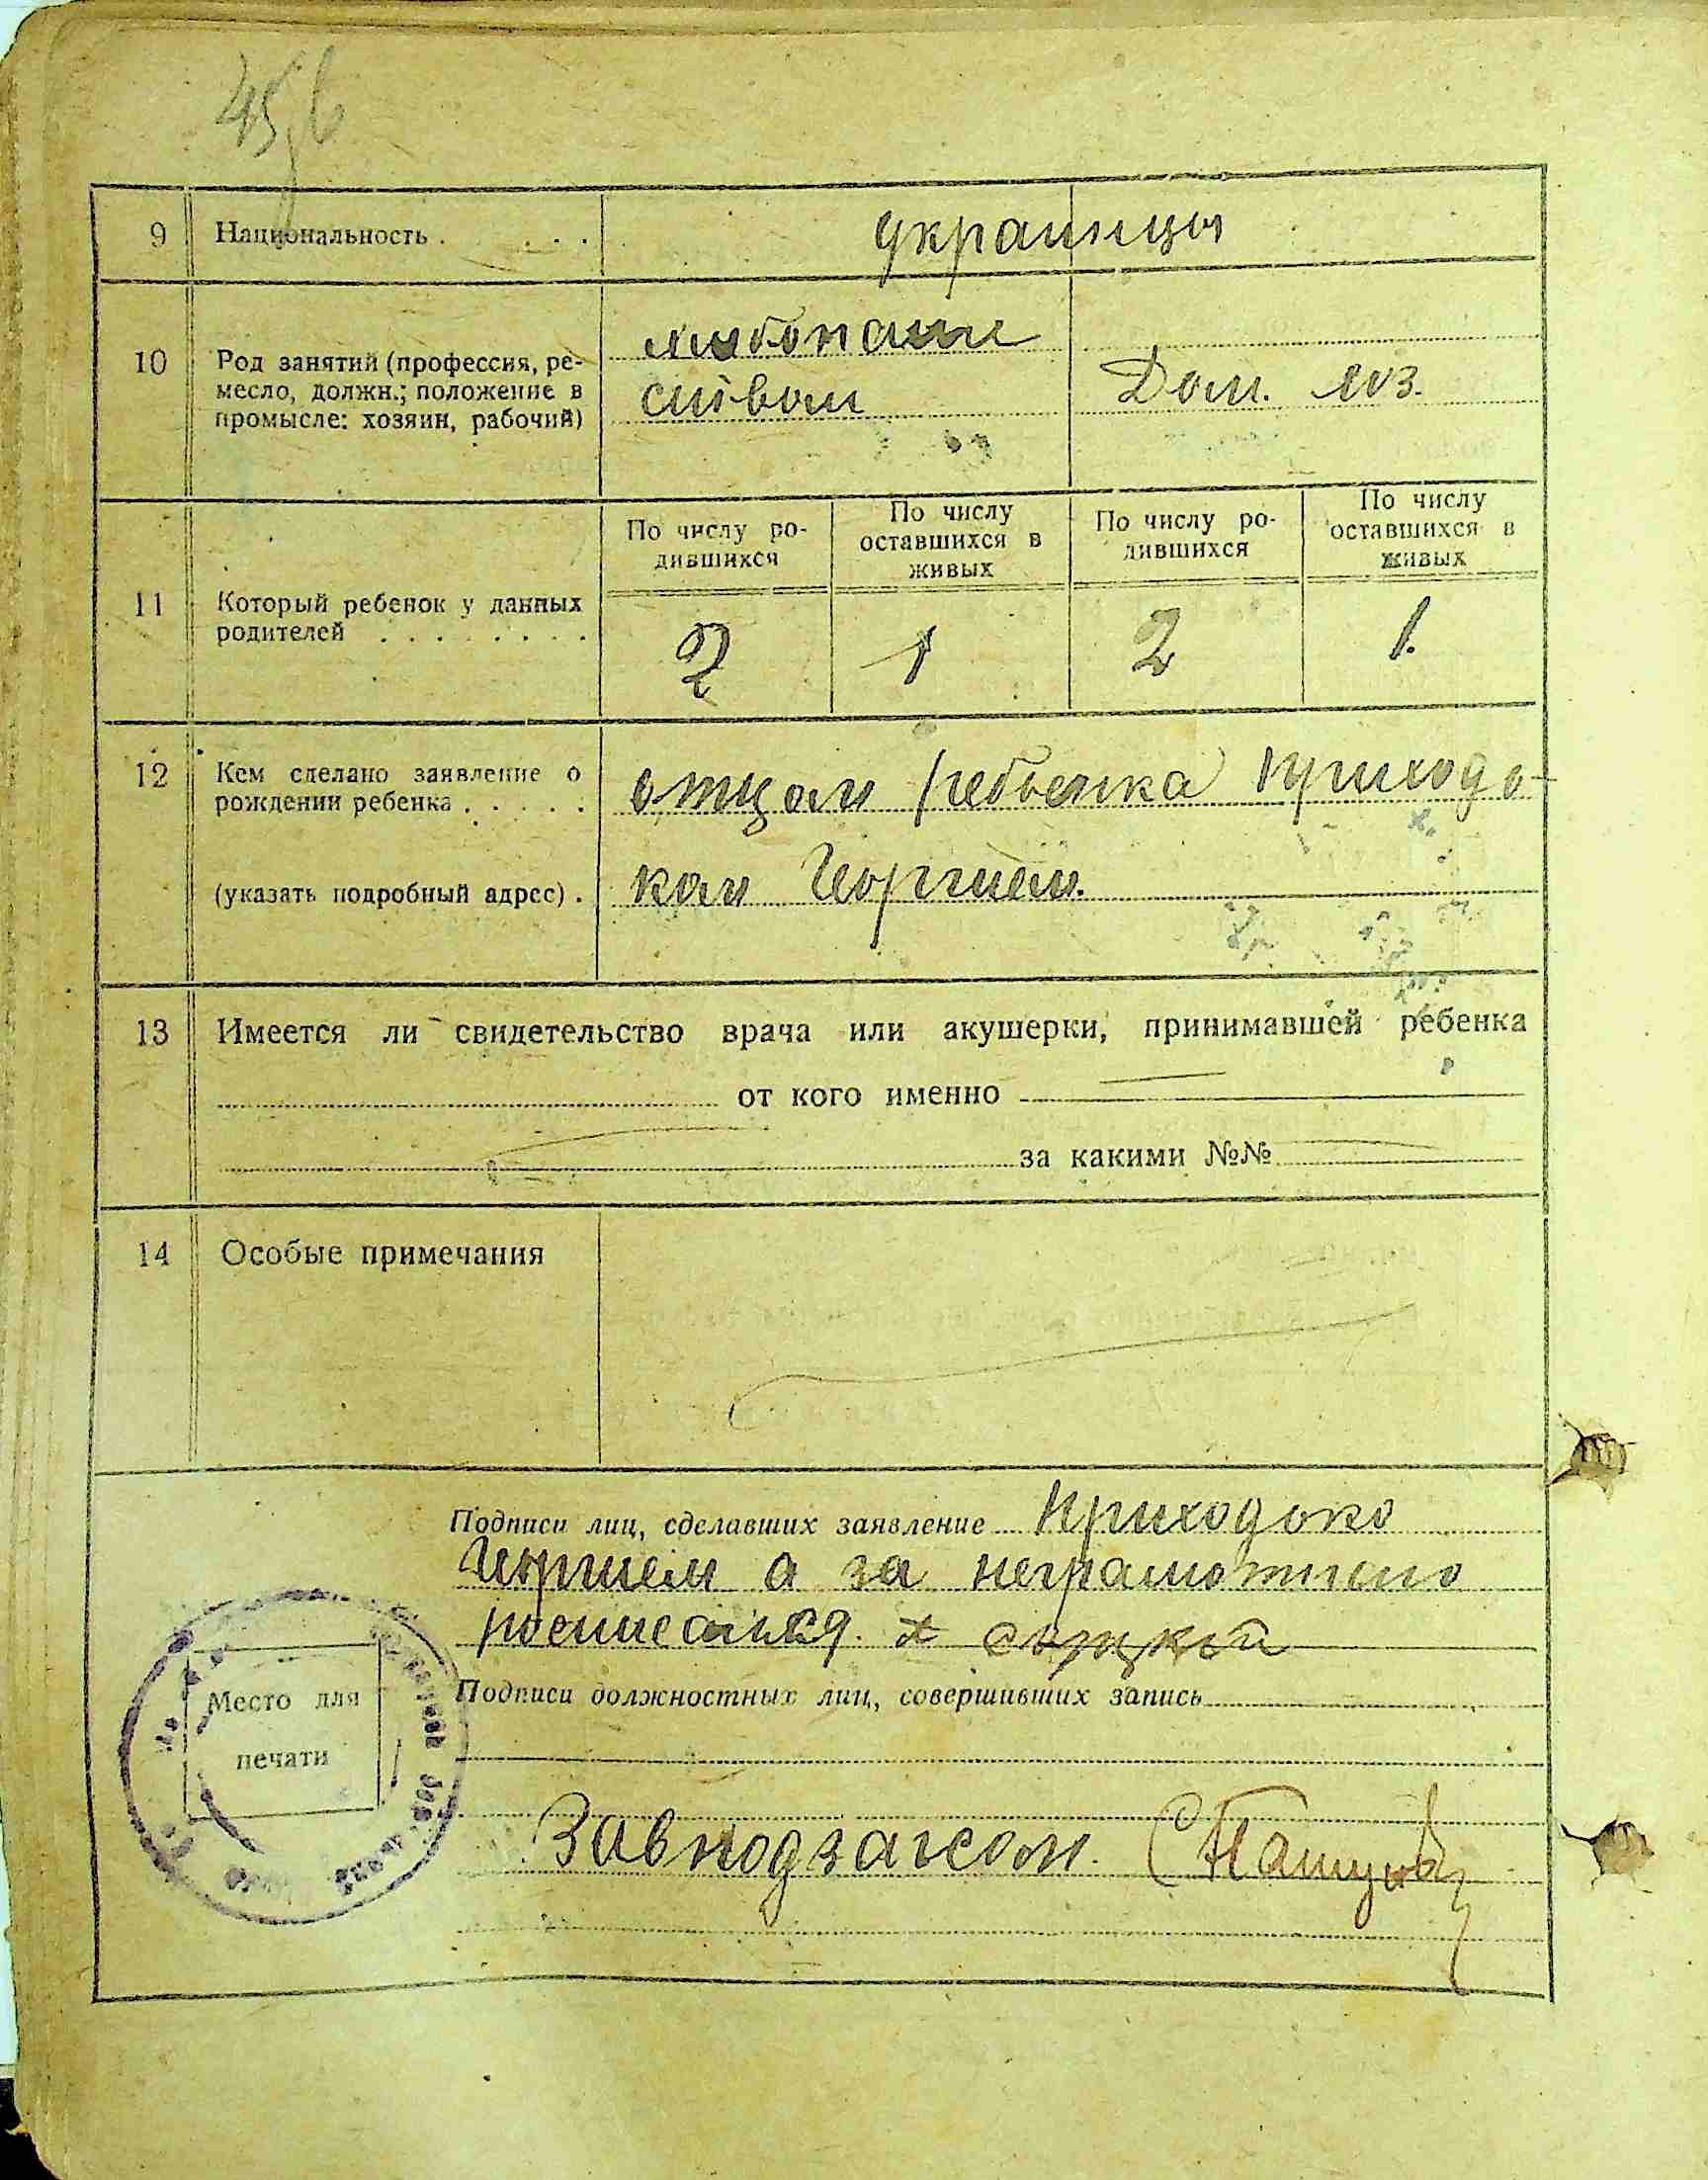 9 Национальность . . . . украинцы
10 Род занятий (профессия, ре-
месло, должн.; положение в
промысле: хозяин, рабочий)
хлибопаше
ством
Дом. хоз.
По числу ро-
дившихся
По числу
оставшихся в
живых
По числу ро-
дившихся
По числу
оставшихся в
живых
11 Который ребенок у данных
родителей . . . . . . . .
2 1 2 1.
12 Кем сделано заявление о
рождении ребенка . . . . .
отцом ребьенка Приходь-
(указать подробный адрес) .
ком Георгием.
13 Имеется ли свидетельство врача или акушерки, принимавшей ребенка
от кого именно
за какими №№
14 Особые примечания
Подписи лиц, сделавших заявление Приходько
Георгием а за неграмотного
Подписи должностных лиц, совершивших запись
Место для
печати
Завподзагсом